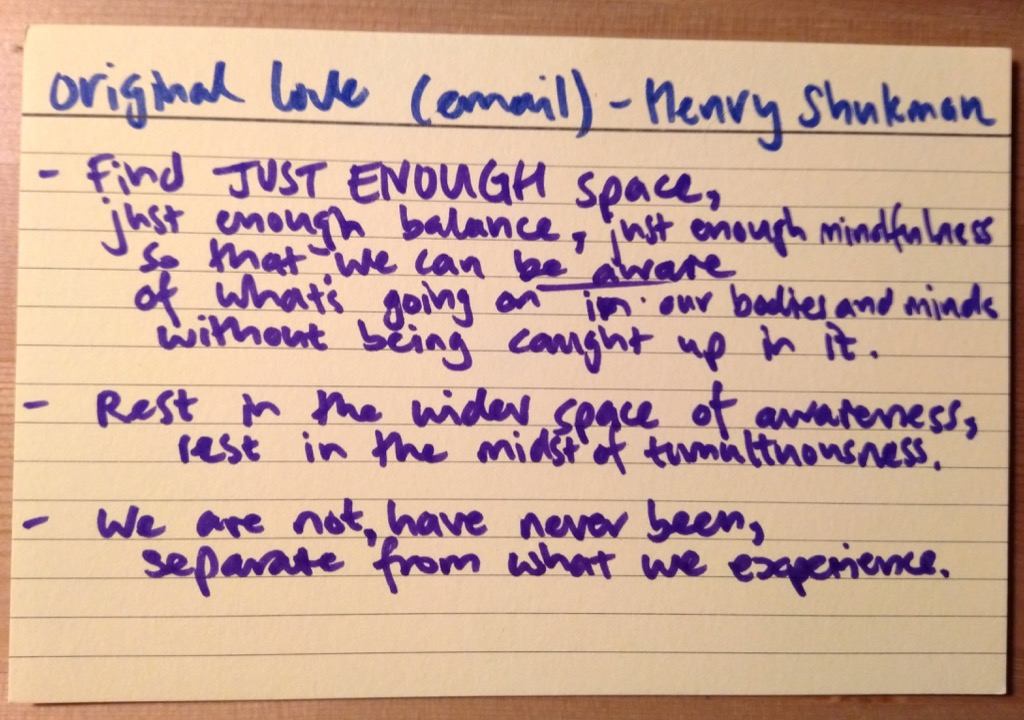 original love (email) - Henry Shukman
- Find JUST ENOUGH space,
just enough balance, just enough mindfulness
so that we can be aware
of what's going on in our bodies and minds
without being caught up in it.
- Rest in the wider space of awareness,
rest in the midst of tumultuousness.
- We are not, have never been,
separate from what we experience.